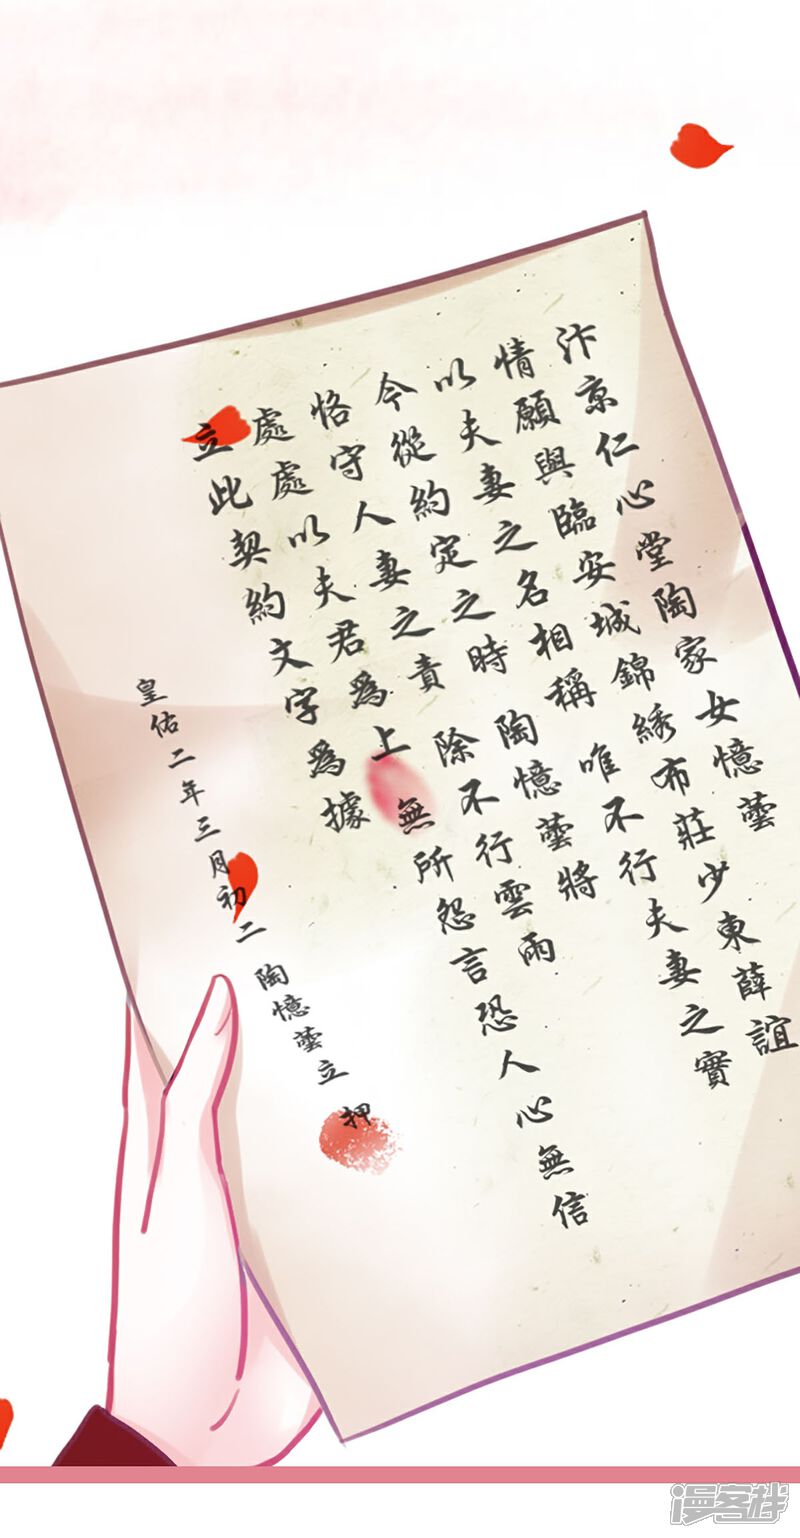 汴京仁心堂陶家女憶蕓
情願與臨安城錦綉布莊少東薛誼
以夫妻之名相稱 唯不行夫妻之實
今從約定之時 陶憶蕓將
恪守人妻之責 除不行雲雨
處處以夫君爲上 無所怨言恐人心無信
立此契約文字爲據
皇佑二年三月初二 陶憶蕓立 押
漫客栈